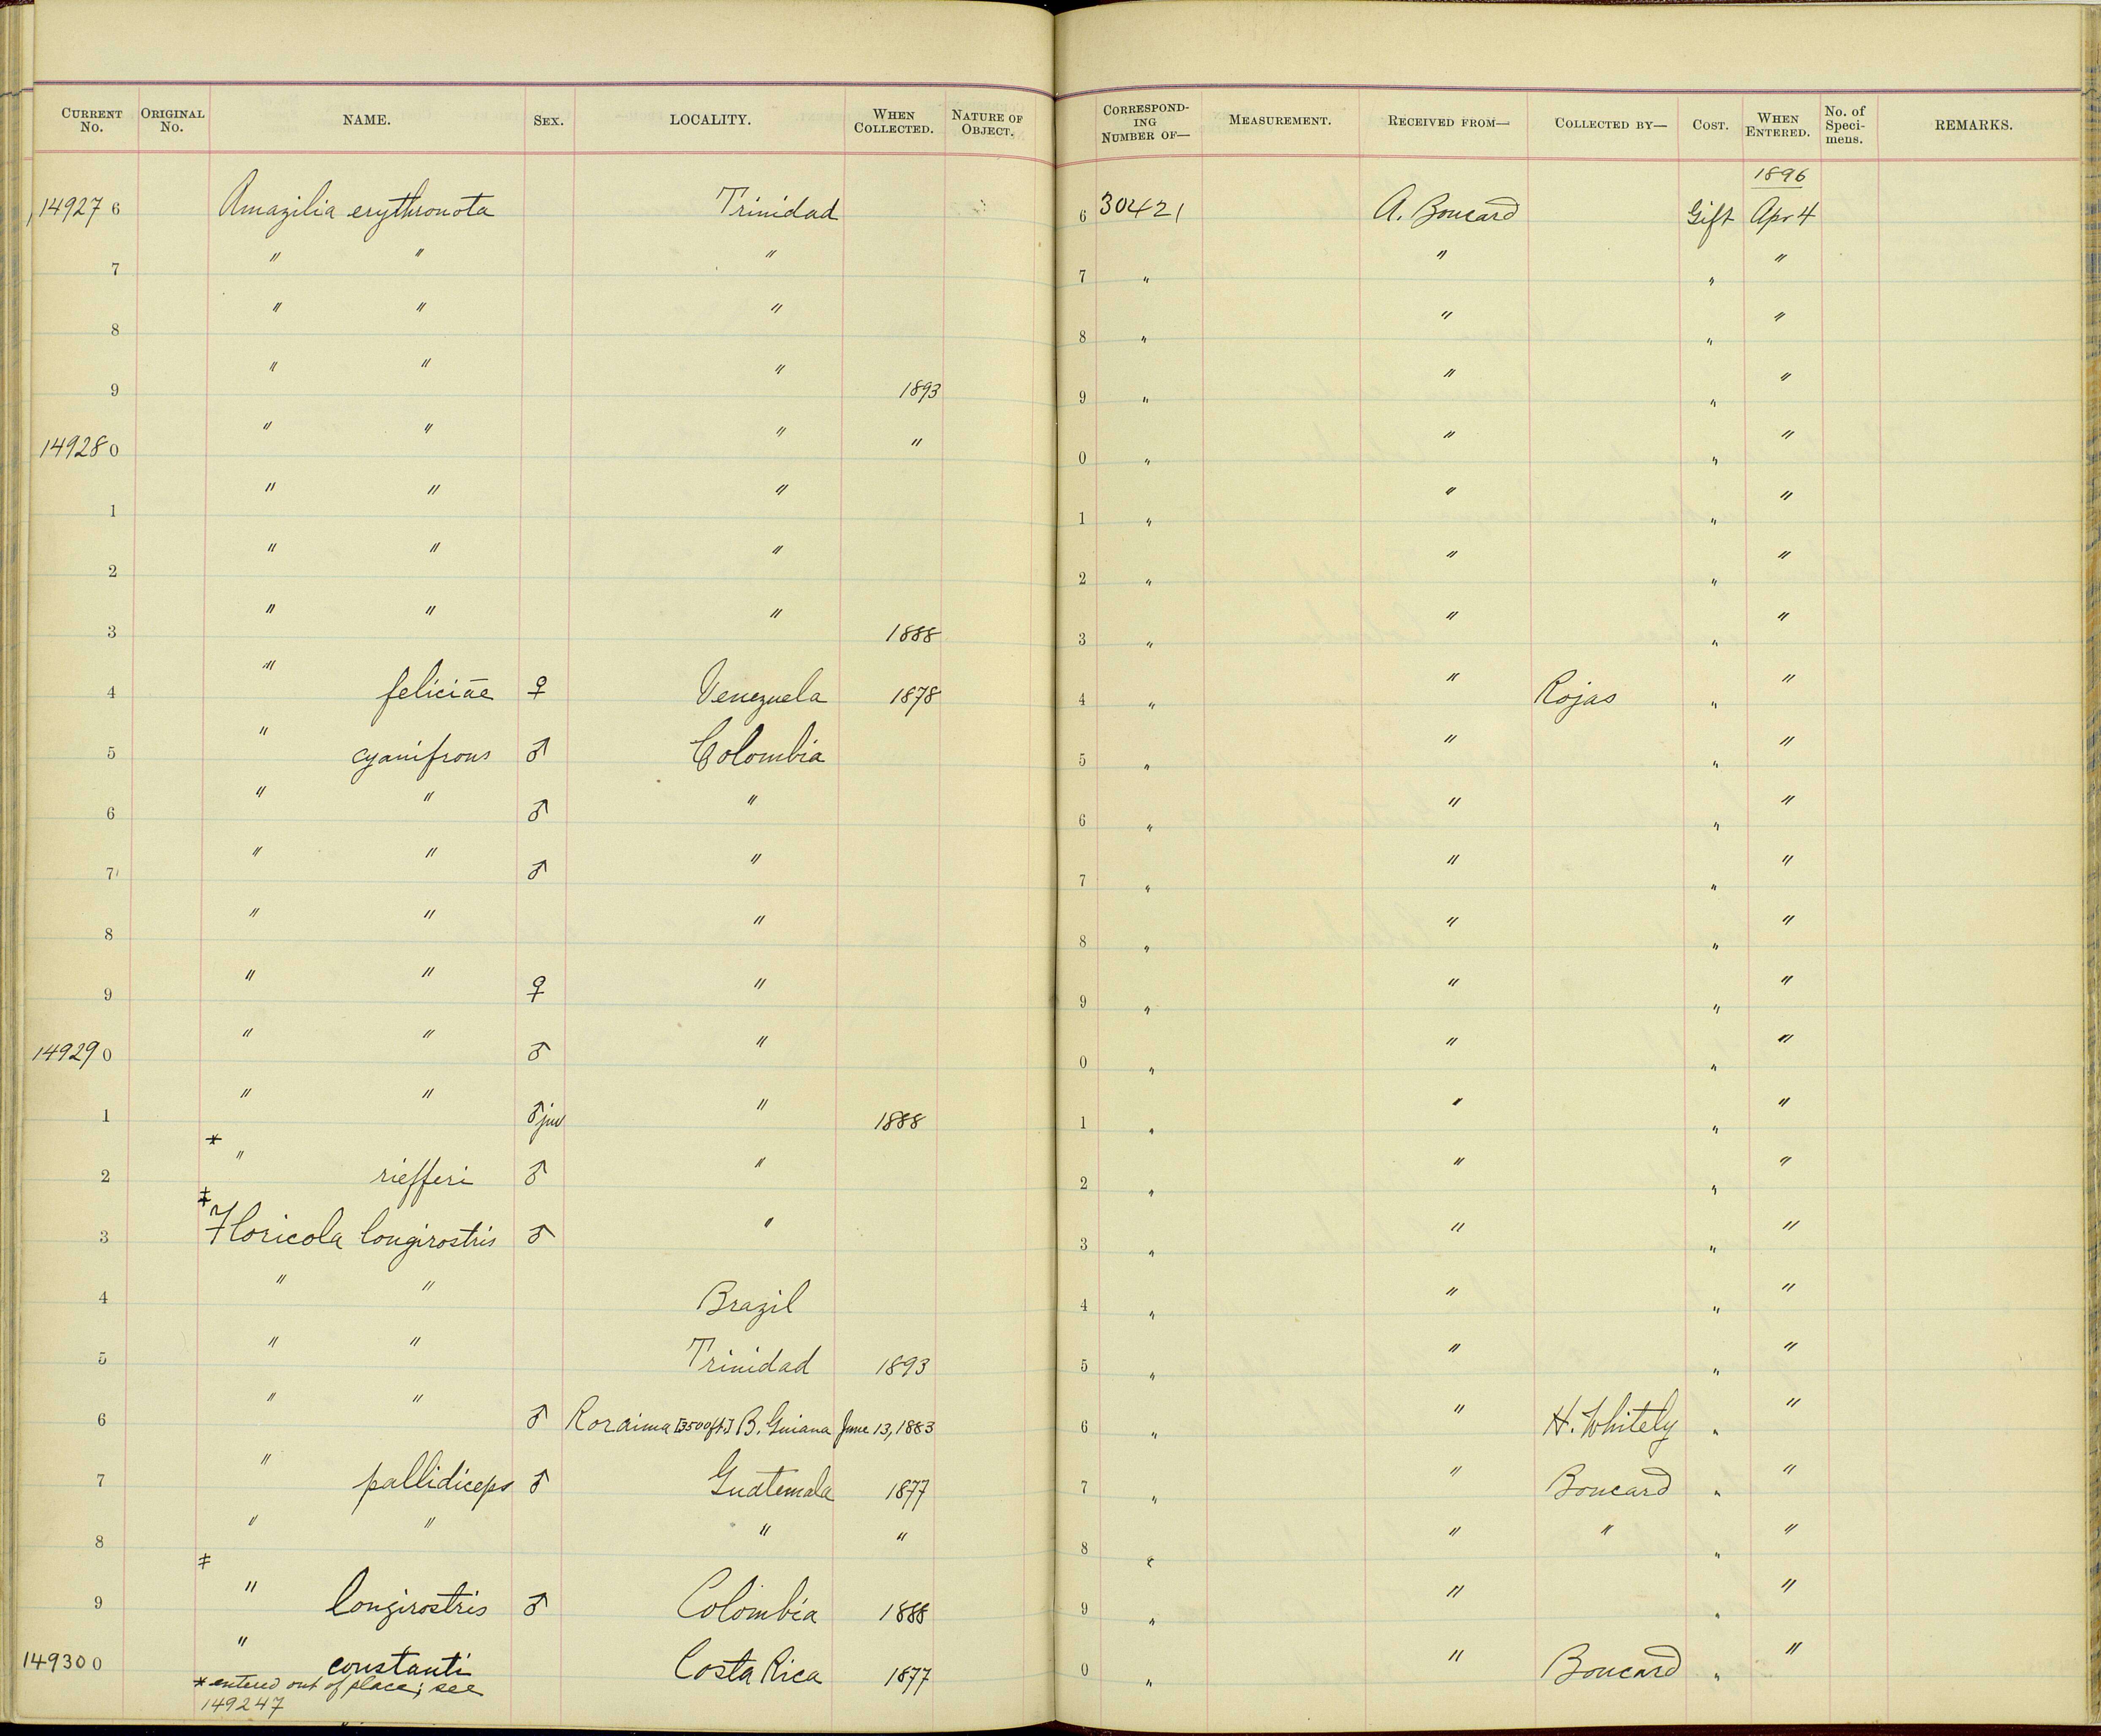 CURRENT No. ORIGINAL No. NAME. SEX. LOCALITY. WHEN COLLECTED. NATURE OF OBJECT. CORRESPONDING NUMBER OF— MEASUREMENT. RECEIVED FROM— COLLECTED BY— COST. WHEN ENTERED. No. of Specimens. REMARKS.
1896
149276 Amazilia erythronota Trinidad 6 30421 A. Boucard Gift Apr 4
7 " " " 7 " " " "
8 " " " 8 " " " "
9 " " " 1893 9 " " " "
149280 " " " " 0 " " " "
1 " " " 1 " " " "
2 " " " 2 " " " "
3 " " " 1888 3 " " " "
4 " feliciae ♀ Venezuela 1878 4 " " Rojas " "
5 " cyanifrons ♂ Colombia 5 " " " "
6 " " ♂ " 6 " " " "
7 " " ♂ " 7 " " " "
8 " " " 8 " " " "
9 " " ♀ " 9 " " " "
149290 " " ♂ " 0 " " " "
1 " " ♂ juv " 1888 1 " " " "
2 * " riefferi ♂ " 2 " " " "
3 ‡ Floricola longirostris ♂ " 3 " " " "
4 " " Brazil 4 " " " "
5 " " Trinidad 1893 5 " " " "
6 " " ♂ Roraima [3500 ft.] B. Guiana June 13, 1883 6 " " H. Whitely " "
7 " pallidiceps ♂ Guatemala 1877 7 " " Boucard " "
8 " " " " 8 " " " " "
9 ‡ " longirostris ♂ Colombia 1888 9 " " " "
149300 " constanti Costa Rica 1877 0 " " Boucard " "
* entered out of place; see
149247